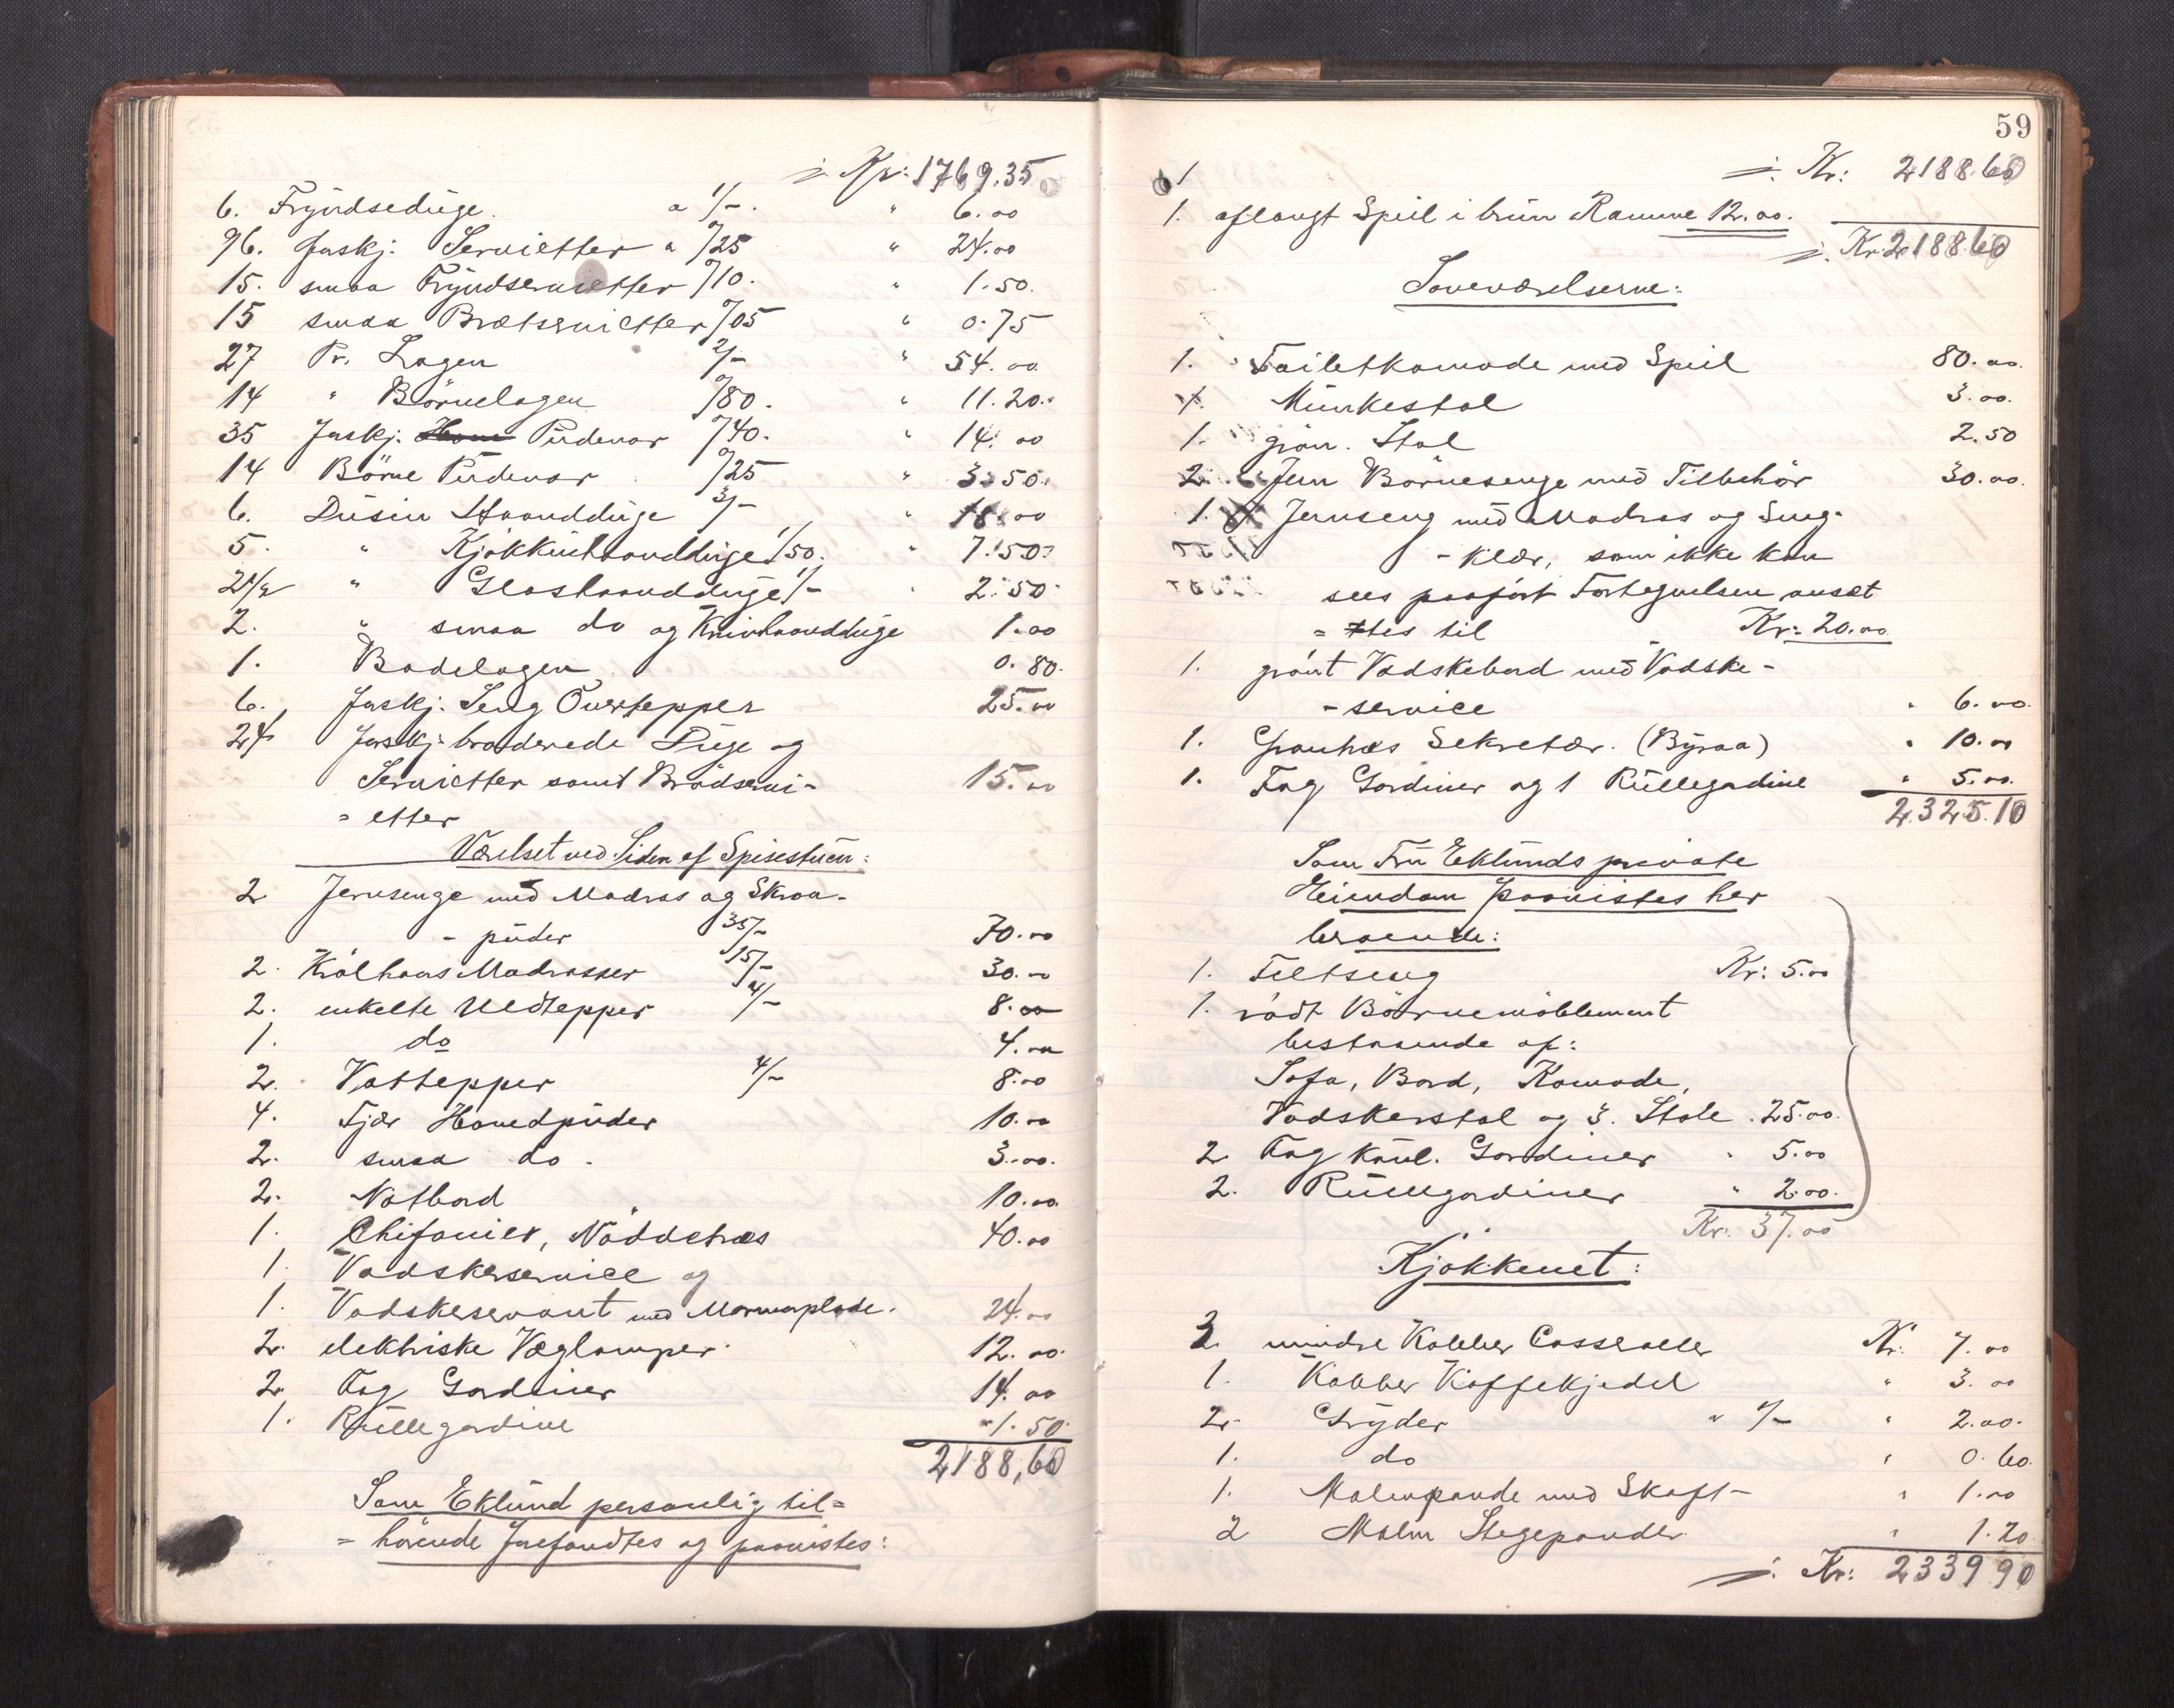 ÷ Kr: 1769.35
6. Fryndseduge. a 1/-. " 6.00
96. forskj. Servietter a "/25 " 24.00
15. smaa Fryndservietter "/10. " 1.50.
15 smaa Brætservietter "/05 " 0.75
27 Pr. Lagen 2/- " 54.00
14 " Börnelagen "/80. " 11.20.
35 forskj. Pudevar "/40. " 14.00
14 Börne Pudevar "/25 " 3.50.
6. Dusin Haandduge 3/- " 18.00
5. " Kjøkkenhaandduge 1/50. " 7.50.
2 1/2 " Glashaandduge 1/- " 2.50
2. " smaa do og Knivhaandduge 1.00
1. Badelagen 0.80.
6. forskj. Seng Overtepper 25.00
24 forskj. broderede Duge og
Servietter samt Brödservi-
= etter 15.00
Værelset ved Siden af Spisestuen:
2 Jernsenge med Madras og Skraa-
- puder 35/- 70.00
2. Krølhaars Madrasser 15/- 30.00
2. enkelte Uldtepper 4/- 8.00
1. do 4.00
2. Vattepper 4/- 8.00
4. Fjær Hovedpuder 10.00
2. smaa do. 3.00.
2. Natbord 10.00.
1. Chifonier, Nöddetræs 40.00
1. Vadskerservice og
1. Vadskeservant med Marmorplade. 24.00
2. elektriske Væglamper. 12.00.
2. Fag Gardiner 14.00
1. Rullegardine " 1.50
2188,60
Som Eklund personlig til=
= hörende forefandtes og paavistes:
59
1 ÷ Kr: 2188.60
1. aflangt Speil i brun Ramme 12.00.
÷ Kr 2188.60
Soveværelserne:
1. Toiletkomode med Speil 80.00.
1. Munkestol 3.00.
1. grön. Stol 2.50
2. Jern Börnesenge med Tilbehör 30.00.
1. Jernseng med Madras og Seng-
- klær, som ikke kan
sees paaført Fortegnelsen ansæt
= tes til Kr: 20.00
1. grönt Vadskebord med Vadske-
- service " 6.00.
1. Granhæs Sekretær. (Byraa) " 10.00
1. Fag Gardiner og 1 Rullegardine " 5.00.
2.325.10
Som Fru Eklunds private
Eiendom paavistes her
beroende:
1. Feltseng Kr: 5.00
1. rödt Börnemöblement
bestaaende af:
Sofa, Bord, Komode,
Vadskerstol og 3. Stole. 25.00.
2 Fag Kaul. Gardiner " 5.00
2. Rullegardiner " 2.00.
Kr. 37.00
Kjøkkenet:
3. mindre Kobber Casseroller Kr. 7.00
1. Kobber Kaffekjedel " 3.00
2. Gryder a 1/- " 2.00.
1. do " 0.60.
1. Malmpande med Skaft- " 1.00
2 Malm Stegepander " 1.20
÷ Kr: 2339 90